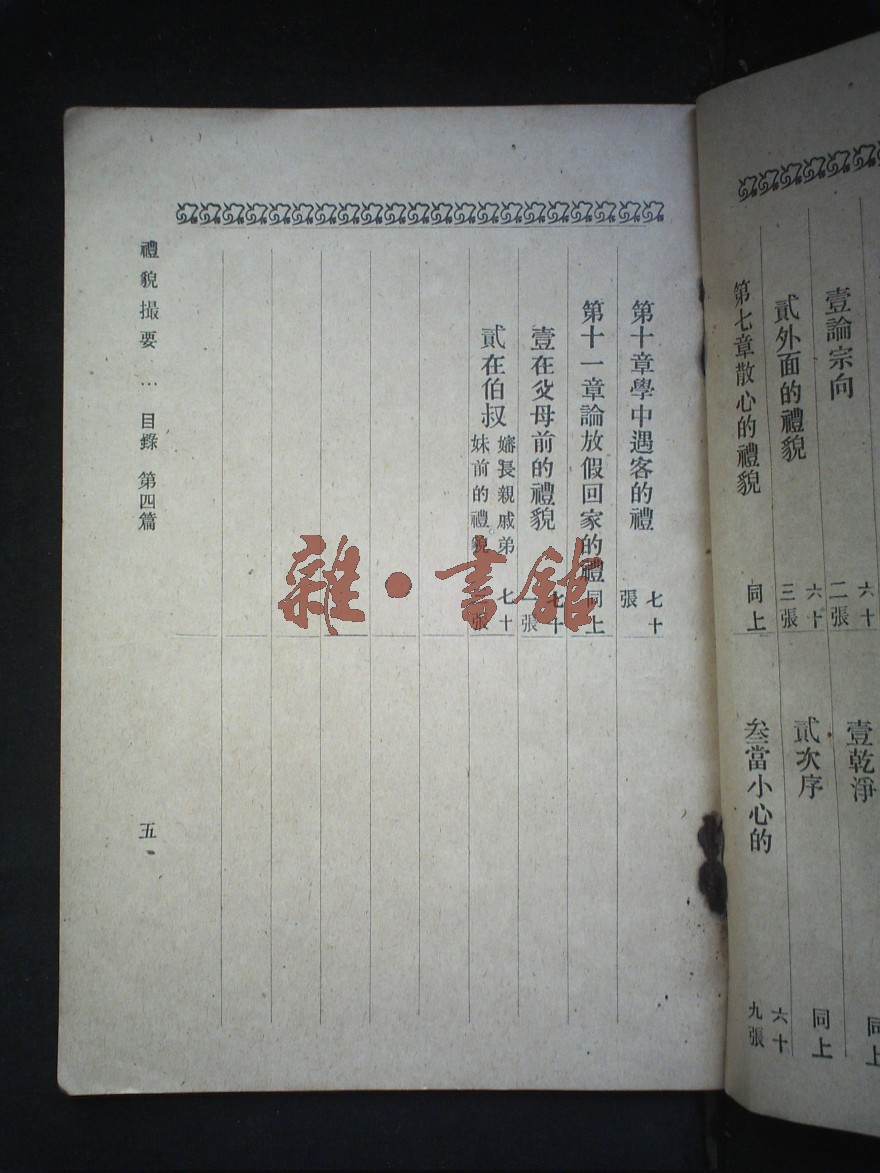 壹論宗向
六十二張
貳外面的禮貌
六十三張
第七章散心的禮貌
同上
壹乾淨
同上
貳次序
同上
叁當小心的
六十九張
第十章學中遇客的禮
七十張
第十一章論放假回家的禮
同上
壹在父母前的禮貌
七十一張
貳在伯叔嬸長親戚弟妹前的禮貌
七十張
禮貌撮要…目錄 第四篇
五
雜·書館